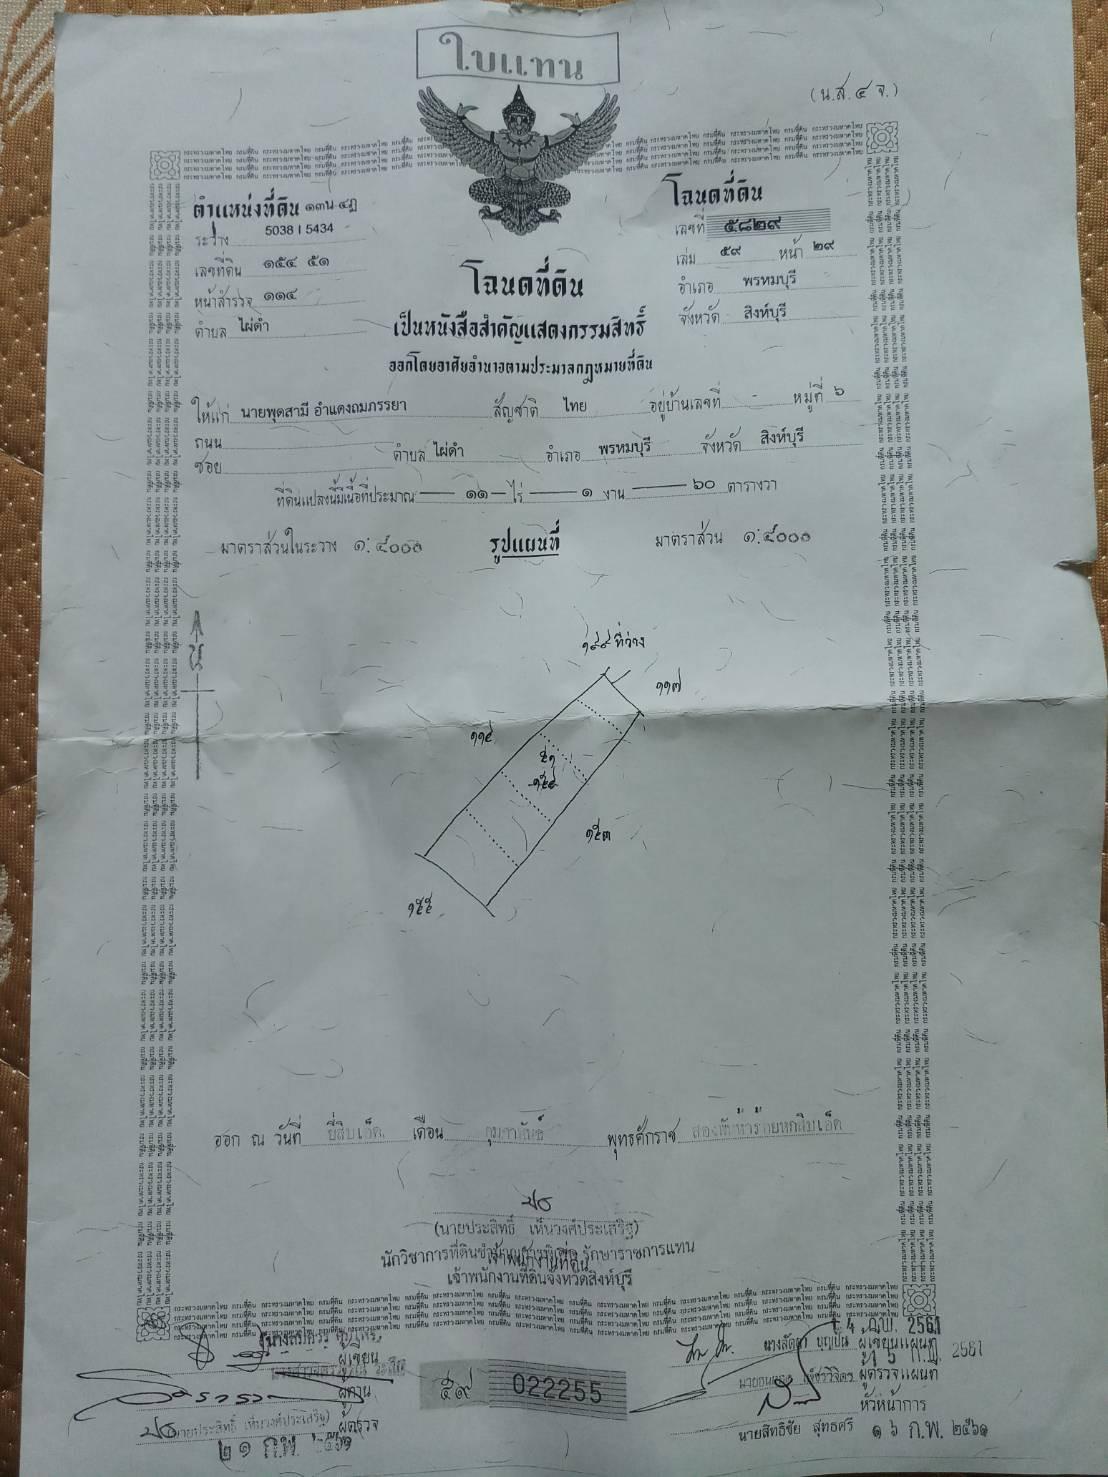 ใบแทน
(น.ส.๔ จ.)
ตำแหน่งที่ดิน ๑๓น ๔ฎ
ระวาง 5038 I 5434
เลขที่ดิน ๑๕๔ ๕๑
หน้าสำรวจ ๑๑๔
ตำบล ไผ่ดำ
โฉนดที่ดิน
เลขที่ ๕๘๒๙
เล่ม ๕๙ หน้า ๒๙
อำเภอ พรหมบุรี
จังหวัด สิงห์บุรี
โฉนดที่ดิน
เป็นหนังสือสำคัญแสดงกรรมสิทธิ์
ออกโดยอาศัยอำนาจตามประมวลกฎหมายที่ดิน
ให้แก่ นายพุดสามี อำแดงถมภรรยา สัญชาติ ไทย อยู่บ้านเลขที่ - หมู่ที่ ๖
ถนน
ซอย ตำบล ไผ่ดำ อำเภอ พรหมบุรี จังหวัด สิงห์บุรี
ที่ดินแปลงนี้มีเนื้อที่ประมาณ ๑๑ ไร่ ๑ งาน ๖๐ ตารางวา
มาตราส่วนในระวาง ๑:๔๐๐๐ รูปแผนที่ มาตราส่วน ๑:๔๐๐๐
น
๑๙๙ ที่ว่าง
๑๑๗
๑๑๕
๕๑
๑๕๔
๑๕๓
๑๕๕
ออก ณ วันที่ ยี่สิบเอ็ด เดือน กุมภาพันธ์ พุทธศักราช สองพันห้าร้อยหกสิบเอ็ด
(นายประสิทธิ์ เห็นวงศ์ประเสริฐ)
นักวิชาการที่ดินชำนาญการพิเศษ รักษาราชการแทน
เจ้าพนักงานที่ดิน
เจ้าพนักงานที่ดินจังหวัดสิงห์บุรี
ผู้เขียน
ผู้ทาน
นายประสิทธิ์ เห็นวงศ์ประเสริฐ) ผู้ตรวจ
๒๑ ก.พ. ๒๕๖๑
๕๙ 022255
ก.พ. 2561
นางลัดดา บุญเป็ง ผู้เขียนแผนที่
๑ ๕ ก.พ. 2561
ผู้ตรวจแผนที่
หัวหน้าการ
นายสิทธิชัย สุทธศรี ๑๖ ก.พ. ๒๕๖๑